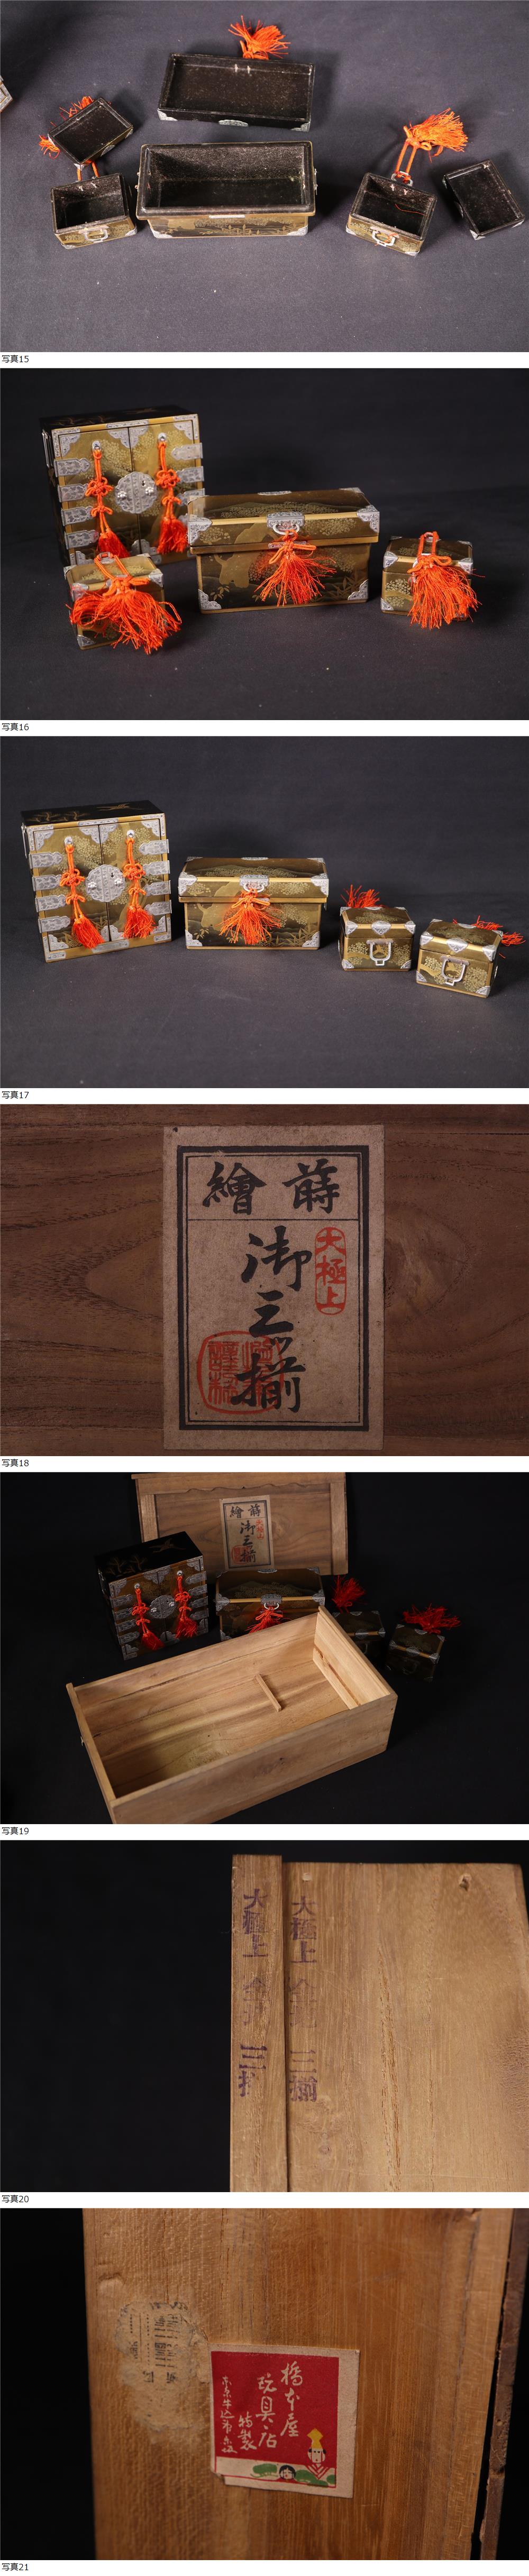 写真15
写真16
写真17
蒔繪
大極上
御三ツ揃
写真18
蒔繪
御三ツ揃
写真19
大極上
三揃
大極上
三揃
写真20
橋本屋
玩具店
特製
写真21